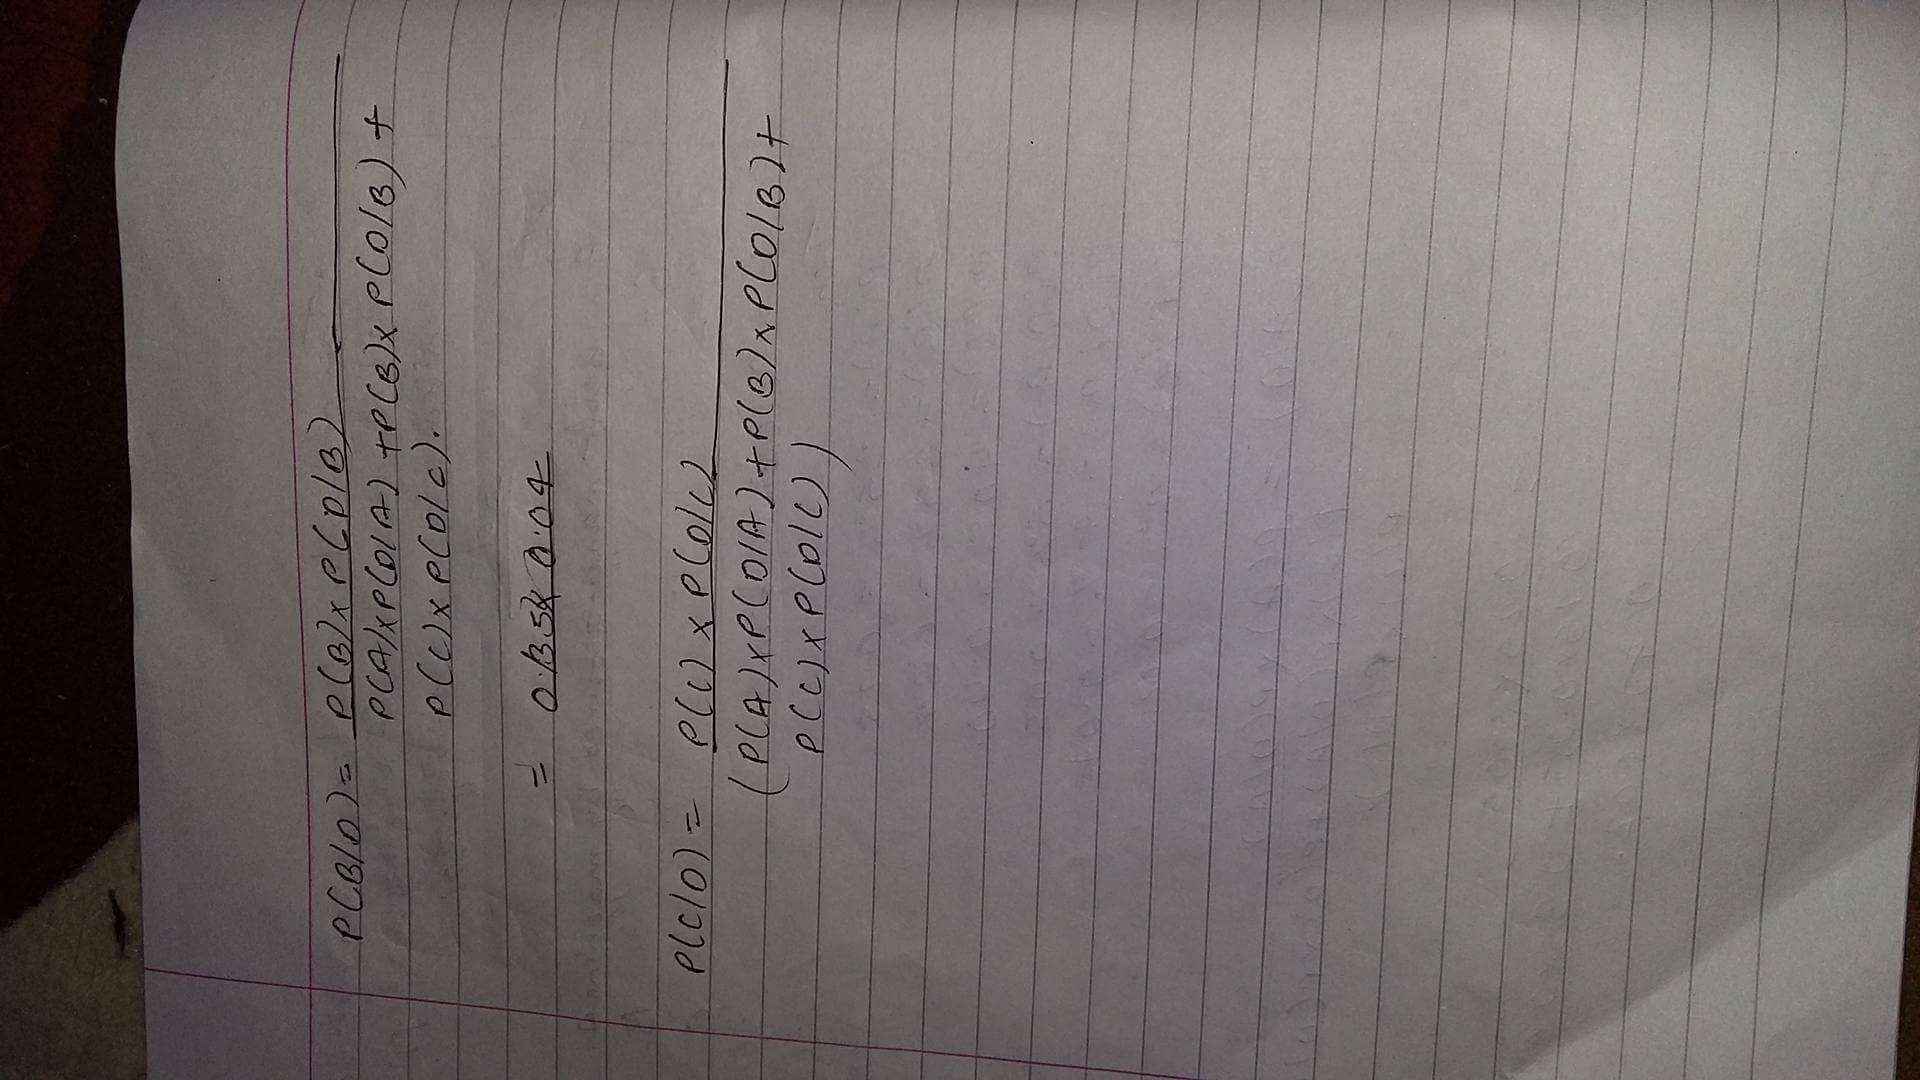 P(B/D) = P(B) x P(D/B)
P(A) x P(D/A) + P(B) x P(D/B) +
P(C) x P(D/C).
= 0.35 x 0.04
P(C/D) = P(C) x P(D/C)
(P(A) x P(D/A) + P(B) x P(D/B) +
P(C) x P(D/C))